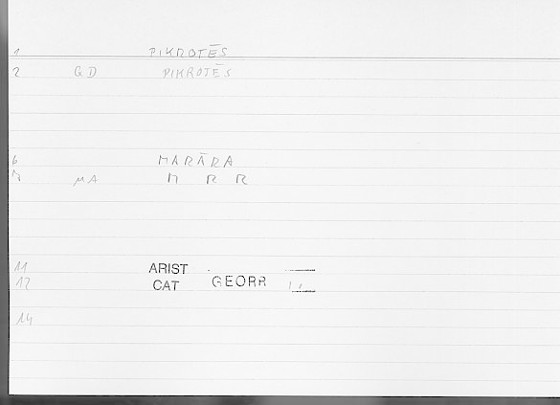 1 PIKROTĒS
2 GD PIKROTĒS
6 MARĀRA
7 MA M R R
11 ARIST
12 CAT GEORR
14